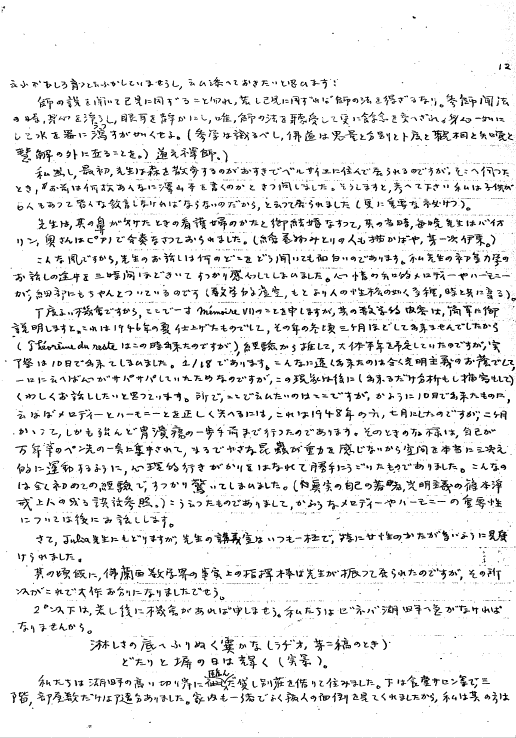 12
云ふがむしろ育つと云ふかしていませうし、云ひ添へておきたいと思ひます:
師の説を聞いて己見に同ずること勿れ、若し己見に同ずれば師の法を得ざるなり。参師聞法
の時、身心を浄うし、眼耳を静かにし、唯、師の法を聴受して更に餘念を交へざれ。身心一如に
して水を器に瀉すが如くせよ。(参学は識るべし、佛道は思量と分別と卜度と観想と知覚と
慧解の外に在ることを。)道元禅師。)
私思ふ、最初、先生は森を散歩するのがおすきでベルサイユに住んで居られるのですが、そこへ伺つた
とき、お前は何故あんなに澤山本を書くのかときつ問しました。さうしますと、考へて下さい私は子供が
6人もあつて皆んな教育しなければならないのだから、と云つて居られました
先生は、其の鼻が欠けたときの看護婦のかたと御結婚なすつて、其の当時、毎晩先生はバイオ
リン、奥さんはピアノで合奏なさつておられました。
こんな風ですから、先生のお話しは何のどこをどう聞いても面白いのであります。私先生の
お話しの途中を三時間ほどきいてすつかり感心してしまひました。心情の知的メロディーやハーモニー
が、細部にもちやんとついているのです
丁度よい機会ですから、ここで一寸 Mémoire VII のことを申しますが、其の数学的内容は、簡単に御
説明しますと、これは1946年の夏仕上げたものでして、その年の冬頃三ケ月ほどして出来ませんでしたから
(Théorème du reste はこの時出来たのですが)、経験から推して、大体半年を予定していたのですが、実
際は10日で出来てしまひました。1/18であります。こんなに速く出来たのは全く光明主義のお蔭でして、
一口に云へば心がサバサバしていたためなのですが、この現象は後に(出来るだけ分析もし描写もして)
くわしくお話ししたいと思つています。所で、ここで云ひたいのはここですが、かように10日で出来たものに、
云はばメロディーとハーモニーとを正しく付へるには、これは1948年の六、七月にしたのですが、二ケ月
かかつて、しかも殆んど胃潰瘍の一歩手前まで行つたのであります。そのときの有様は、自己が
万年筆のペン先の一点に集中されて、まるで小さな昆虫が重力を感じないから空間を本当に三次元
的に運動するように、心理的行きがかりをはなれて勝手にうごいたものでありました。こんなの
は全く初めての経験で、すつかり驚いてしまひました。
こう云つたものでありまして、かようなメロディーやハーモニーの重要性
については後にお話しします。
さて、Julia先生にもどりますが、先生の講義室はいつも一杯で、特に女性のかたが多いように見受
けられました。
其の頃既に、佛蘭西数学界の事実上の指揮棒は先生が振つて居られたのですが、その所
以がこれで大体お分りになりましたでせう。
2°以下は、若し後に機会があれば申しませう。私たちはゼネバ湖畔へ急がなければ
なりませんから。
淋しさの底へふりぬく霙かな(ラヂオ、第二稿のとき)
どたりと塀の日は輝く(実景)。
私たちは湖畔の高い切り岸に臨んだ貸し別荘を借りて住みました。下は食堂サロン等で三
階、部屋数だけは沢山ありました。家内も一緒でよく病人の面倒を見てくれましたから、私は其の方は